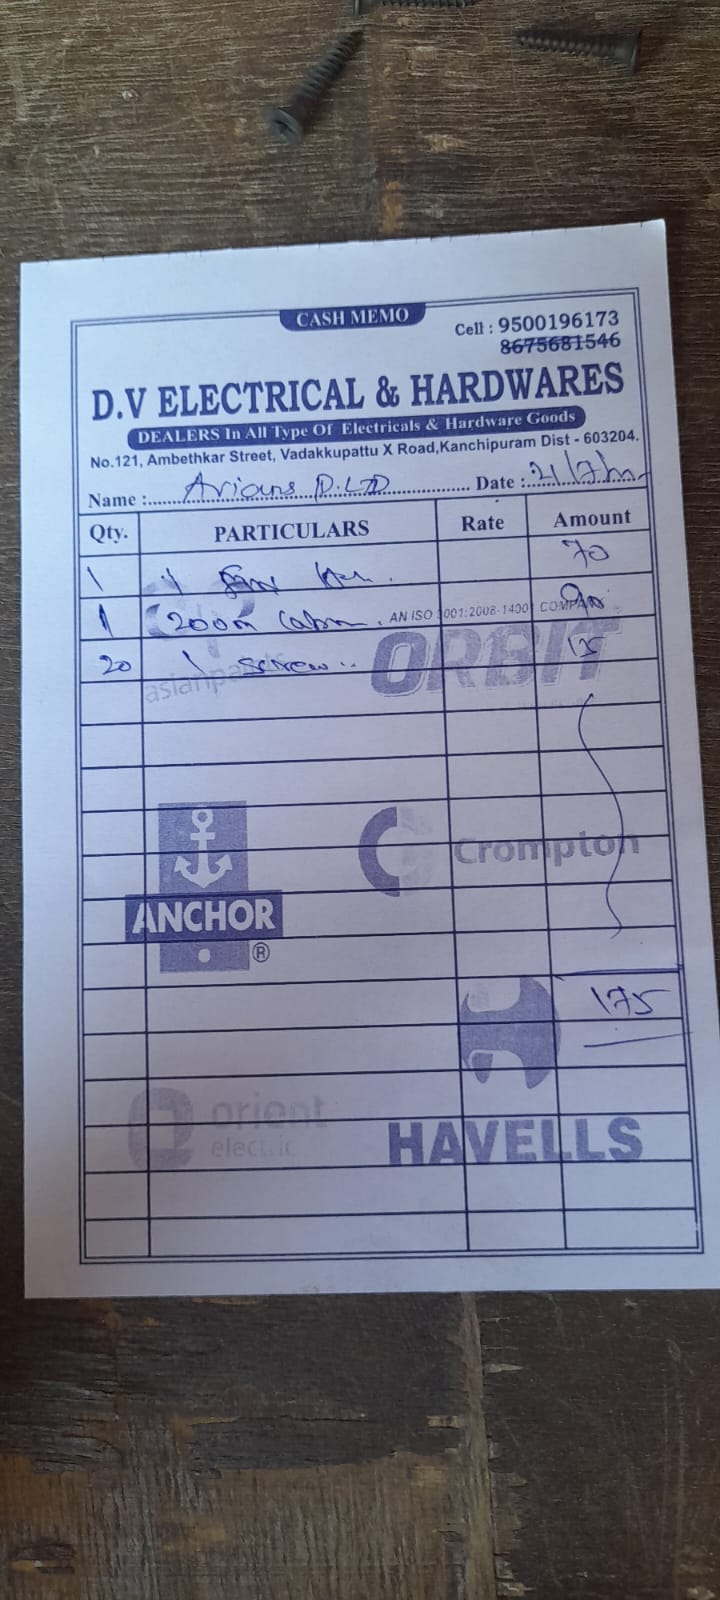 CASH MEMO
Cell : 9500196173
8675681546
D.V ELECTRICAL & HARDWARES
DEALERS In All Type Of Electricals & Hardware Goods
No.121, Ambethkar Street, Vadakkupattu X Road,Kanchipuram Dist - 603204.
Name : Arians P.LTD Date : 21/7/
Qty. PARTICULARS Rate Amount
1 70
1 200m
AN ISO 9001:2008-1400 COMPAN
20 1 screw
asianpaints ORBIT
ANCHOR ®
Crompton
175
orient
electric
HAVELLS